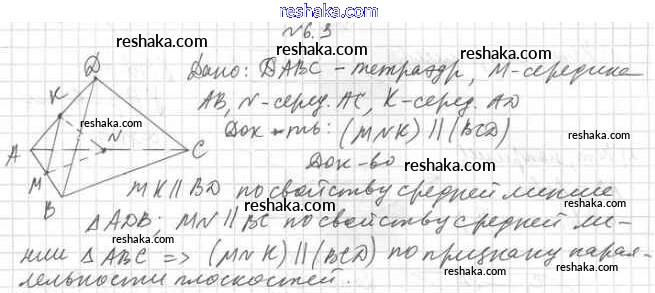 №6.3
reshaka.com
Дано: DABC - тетраэдр, M - середина
AB, N - серед. AC, K - серед. AD
Док-ть: (MNK) || (BCD)
Док-во
MK || BD по свойству средней линии
△ADB; MN || BC по свойству средней ли-
нии △ABC => (MNK) || (BCD) по признаку парал-
лельности плоскостей.
D
K
A
N
C
M
B
reshaka.com
reshaka.com
reshaka.com
reshaka.com
reshaka.com
reshaka.com
reshaka.com
reshaka.com
reshaka.com